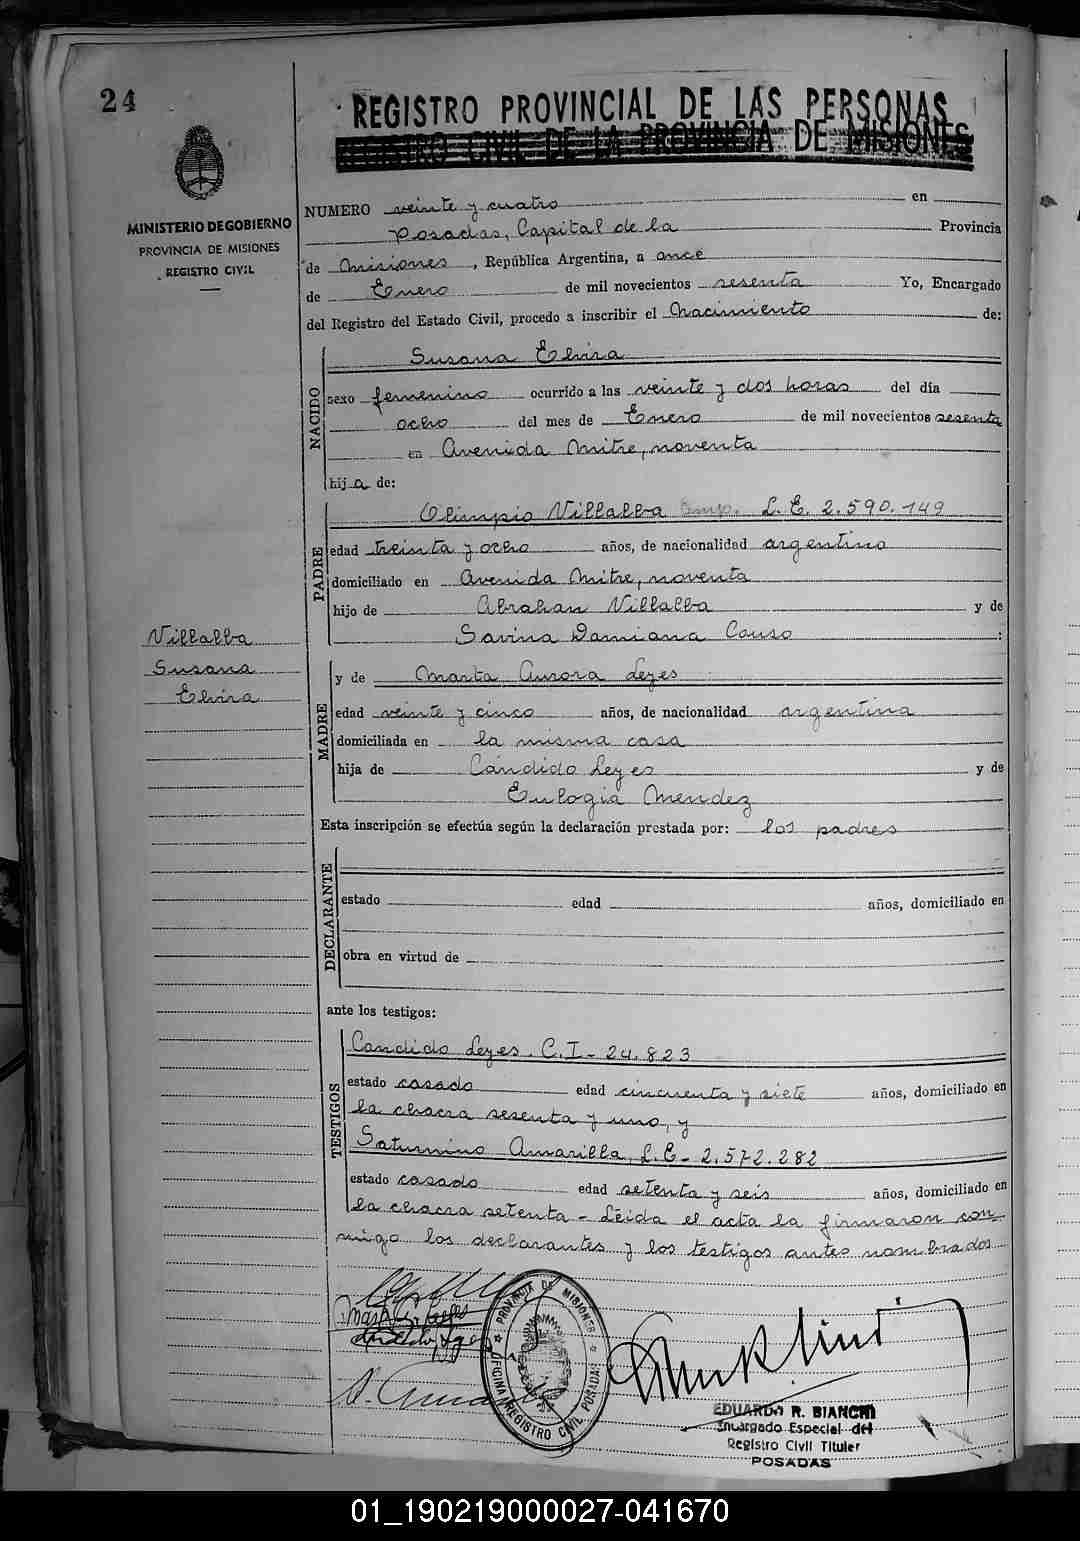 24
MINISTERIO DE GOBIERNO
PROVINCIA DE MISIONES
REGISTRO CIVIL
REGISTRO PROVINCIAL DE LAS PERSONAS
REGISTRO CIVIL DE LA PROVINCIA DE MISIONES
NUMERO veinte y cuatro en
Posadas, Capital de la Provincia
de Misiones, República Argentina, a once
de Enero de mil novecientos sesenta Yo, Encargado
del Registro del Estado Civil, procedo a inscribir el Nacimiento de:
NACIDO
Susana Elvira
sexo femenino ocurrido a las veinte y dos horas del día
ocho del mes de Enero de mil novecientos sesenta
en Avenida Mitre, noventa
hija de:
PADRE
Olimpio Villalba Emp. L.E. 2.590.149
edad treinta y ocho años, de nacionalidad argentino
domiciliado en Avenida Mitre, noventa
hijo de Abrahan Villalba y de
Savina Damiana Couso :
Villalba
Susana
Elvira
MADRE
y de Marta Aurora Leyes
edad veinte y cinco años, de nacionalidad argentina
domiciliada en la misma casa
hija de Cándido Leyes y de
Eulogia Mendez
Esta inscripción se efectúa según la declaración prestada por: los padres
DECLARANTE
estado edad años, domiciliado en
obra en virtud de
ante los testigos:
TESTIGOS
Candido Leyes. C.I- 24.823
estado casado edad cincuenta y siete años, domiciliado en
la chacra sesenta y uno, y
Saturnino Amarilla, L.E- 2.572.282
estado casado edad setenta y seis años, domiciliado en
la chacra setenta - Leida el acta la firmaron con-
migo los declarantes y los testigos antes nombrados
PROVINCIA DE MISIONES
OFICINA REGISTRO CIVIL POSADAS
EDUARDO R. BIANCHI
Encargado Especial del
Registro Civil Titular
POSADAS
01_190219000027-041670